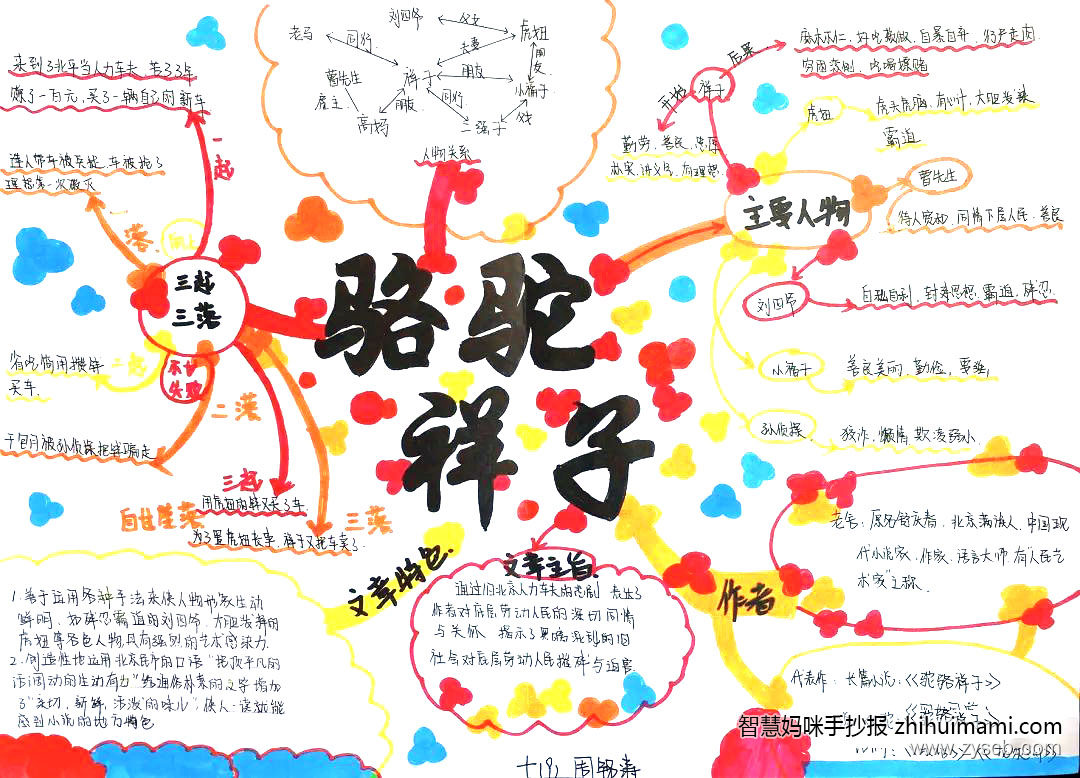 骆驼
祥子
刘四爷
父女
虎妞
老马
同行
夫妻
朋友
曹先生
雇主
祥子
朋友
小福子
高妈
朋友
同行
二强子
父女
人物关系
三起
三落
一起
来到了北平当人力车夫,苦了3年
赚了一百元,买了一辆自己的新车
一落
连人带车被兵抓,车被抢了
理想第一次破灭
二起
省吃俭用攒钱
买车.
不甘
失败
二落
干包月被孙侦探把钱骗走
三起
用虎妞的钱又买了车
自甘堕落
三落
为了置虎妞丧事,祥子又把车卖了.
主要人物
祥子
开始
勤劳、善良、忠厚
朴实.讲义气.有理想
后果
麻木不仁、好吃懒做、自暴自弃、行尸走肉
虎妞
虎头虎脑,有心计,大胆泼辣
霸道
曹先生
待人宽和.同情下层人民.善良
刘四爷
自私自利、封建思想、霸道、残忍
小福子
善良美丽,勤俭,要强
孙侦探
狡诈、懒惰,欺凌弱小
文章特色
1.善于运用各种手法来使人物形象生动
鲜明、如残忍霸道的刘四爷、大胆泼辣的
虎妞等各色人物,具有强烈的艺术感染力.
2.创造性地运用北京民户的口语"把顶平凡的
话调动的生动有力"
"亲切,新鲜,活泼的味儿"使人一读就能
感到小说的地方特色
文章主旨
通过旧北京人力车夫的悲剧,表达了
作者对底层劳动人民的深切同情
与关怀,揭示了黑暗混乱的旧
社会对底层劳动人民摧残与迫害
作者
老舍:原名舒庆春,北京满族人,中国现
代小说家、作家、语言大师.有"人民艺
术家"之称.
代表作:长篇小说:《骆驼祥子》
《四世同堂》
智慧妈咪手抄报 zhihuimami.com